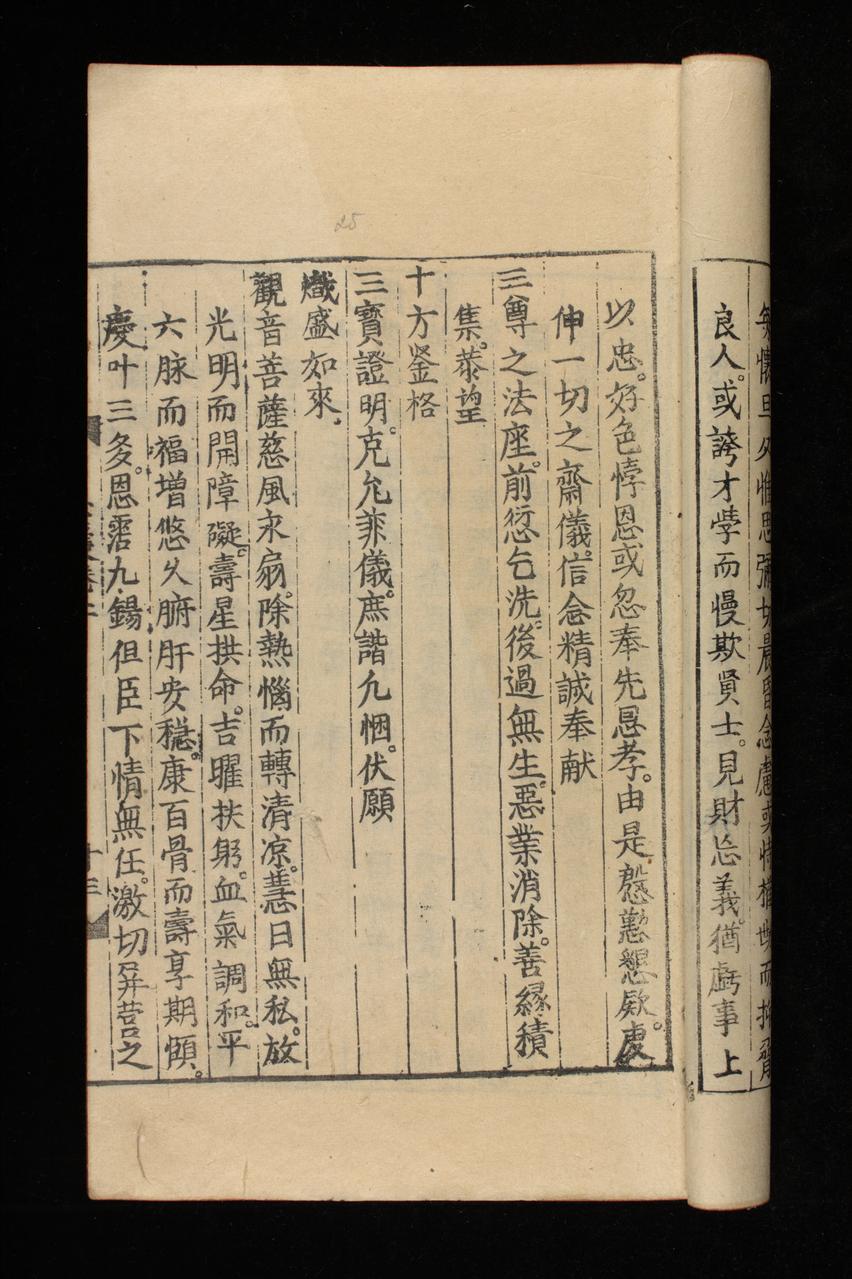 無懷旦夕惟思彌切晨昏念慮或恃權勢而抑
良人。或誇才學而慢欺賢士。見財忘義。猶虧事上
以忠。好色悖恩或忽奉先思孝。由是慇懃懇厥虔。
伸一切之齋儀。信念精誠奉献
三尊之法座。前愆乞洗。後過無生。惡業消除。善緣積
集。恭望
十方鉴格
三寶證明。克允菲儀。庶諧允悃。伏願
熾盛如來
觀音菩薩慈風永扇。除熱惱而轉清凉。慧日無私。放
光明而開障礙。壽星拱命。吉曜扶躬。血氣調和。平
六脉而福增悠久腑肝安穏。康百骨而壽享期頥。
慶叶三多。恩霑九鍚但臣下情無任。激切屏营之
十三